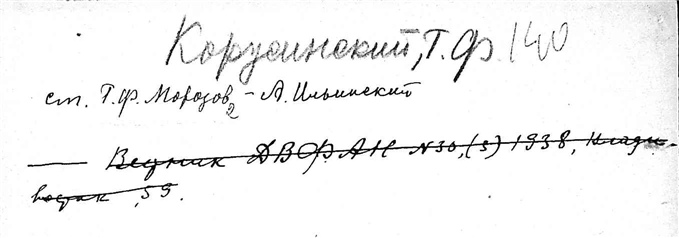 Корусинский, Т.Ф. 140
см. Т.Ф. Морозов₂ - А. Ильинский
— Вестник ДВФАН №30, (3) 1938, Влади-
восток, 59.